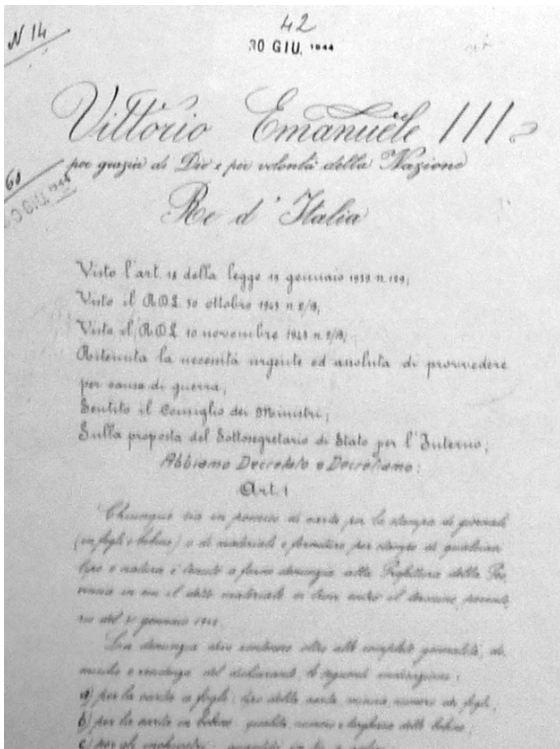 N 14
42
30 GIU. 1944
Vittorio Emanuele III
per grazia di Dio e per volontà della Nazione
Re d'Italia
60
Visto l'art. 18 della legge 19 gennaio 1939 n. 129;
Visto il R.D.L. 30 ottobre 1943 n. 2/B;
Visto il R.D.L. 10 novembre 1943 n. 5/B;
Ritenuta la necessità urgente ed assoluta di provvedere
per causa di guerra;
Sentito il Consiglio dei Ministri;
Sulla proposta del Sottosegretario di Stato per l'Interno;
Abbiamo Decretato e Decretiamo:
Art. 1
Chiunque sia in possesso di carta per la stampa di giornali
(in fogli e bobine) o di materiale e forniture per stampa di qualsiasi
tipo e natura è tenuto a farne denunzia alla Prefettura della Pro
vincia in cui il detto materiale si trova entro il termine perento
rio del 31 gennaio
La denunzia deve contenere oltre alle complete generalità, do
micilio e residenza del dichiarante, le seguenti indicazioni:
a) per la carta a fogli: tipo della carta, misura, numero dei fogli;
b) per la carta in bobine: qualità, numero e larghezza delle bobine;
c) per gli inchiostri: quantità